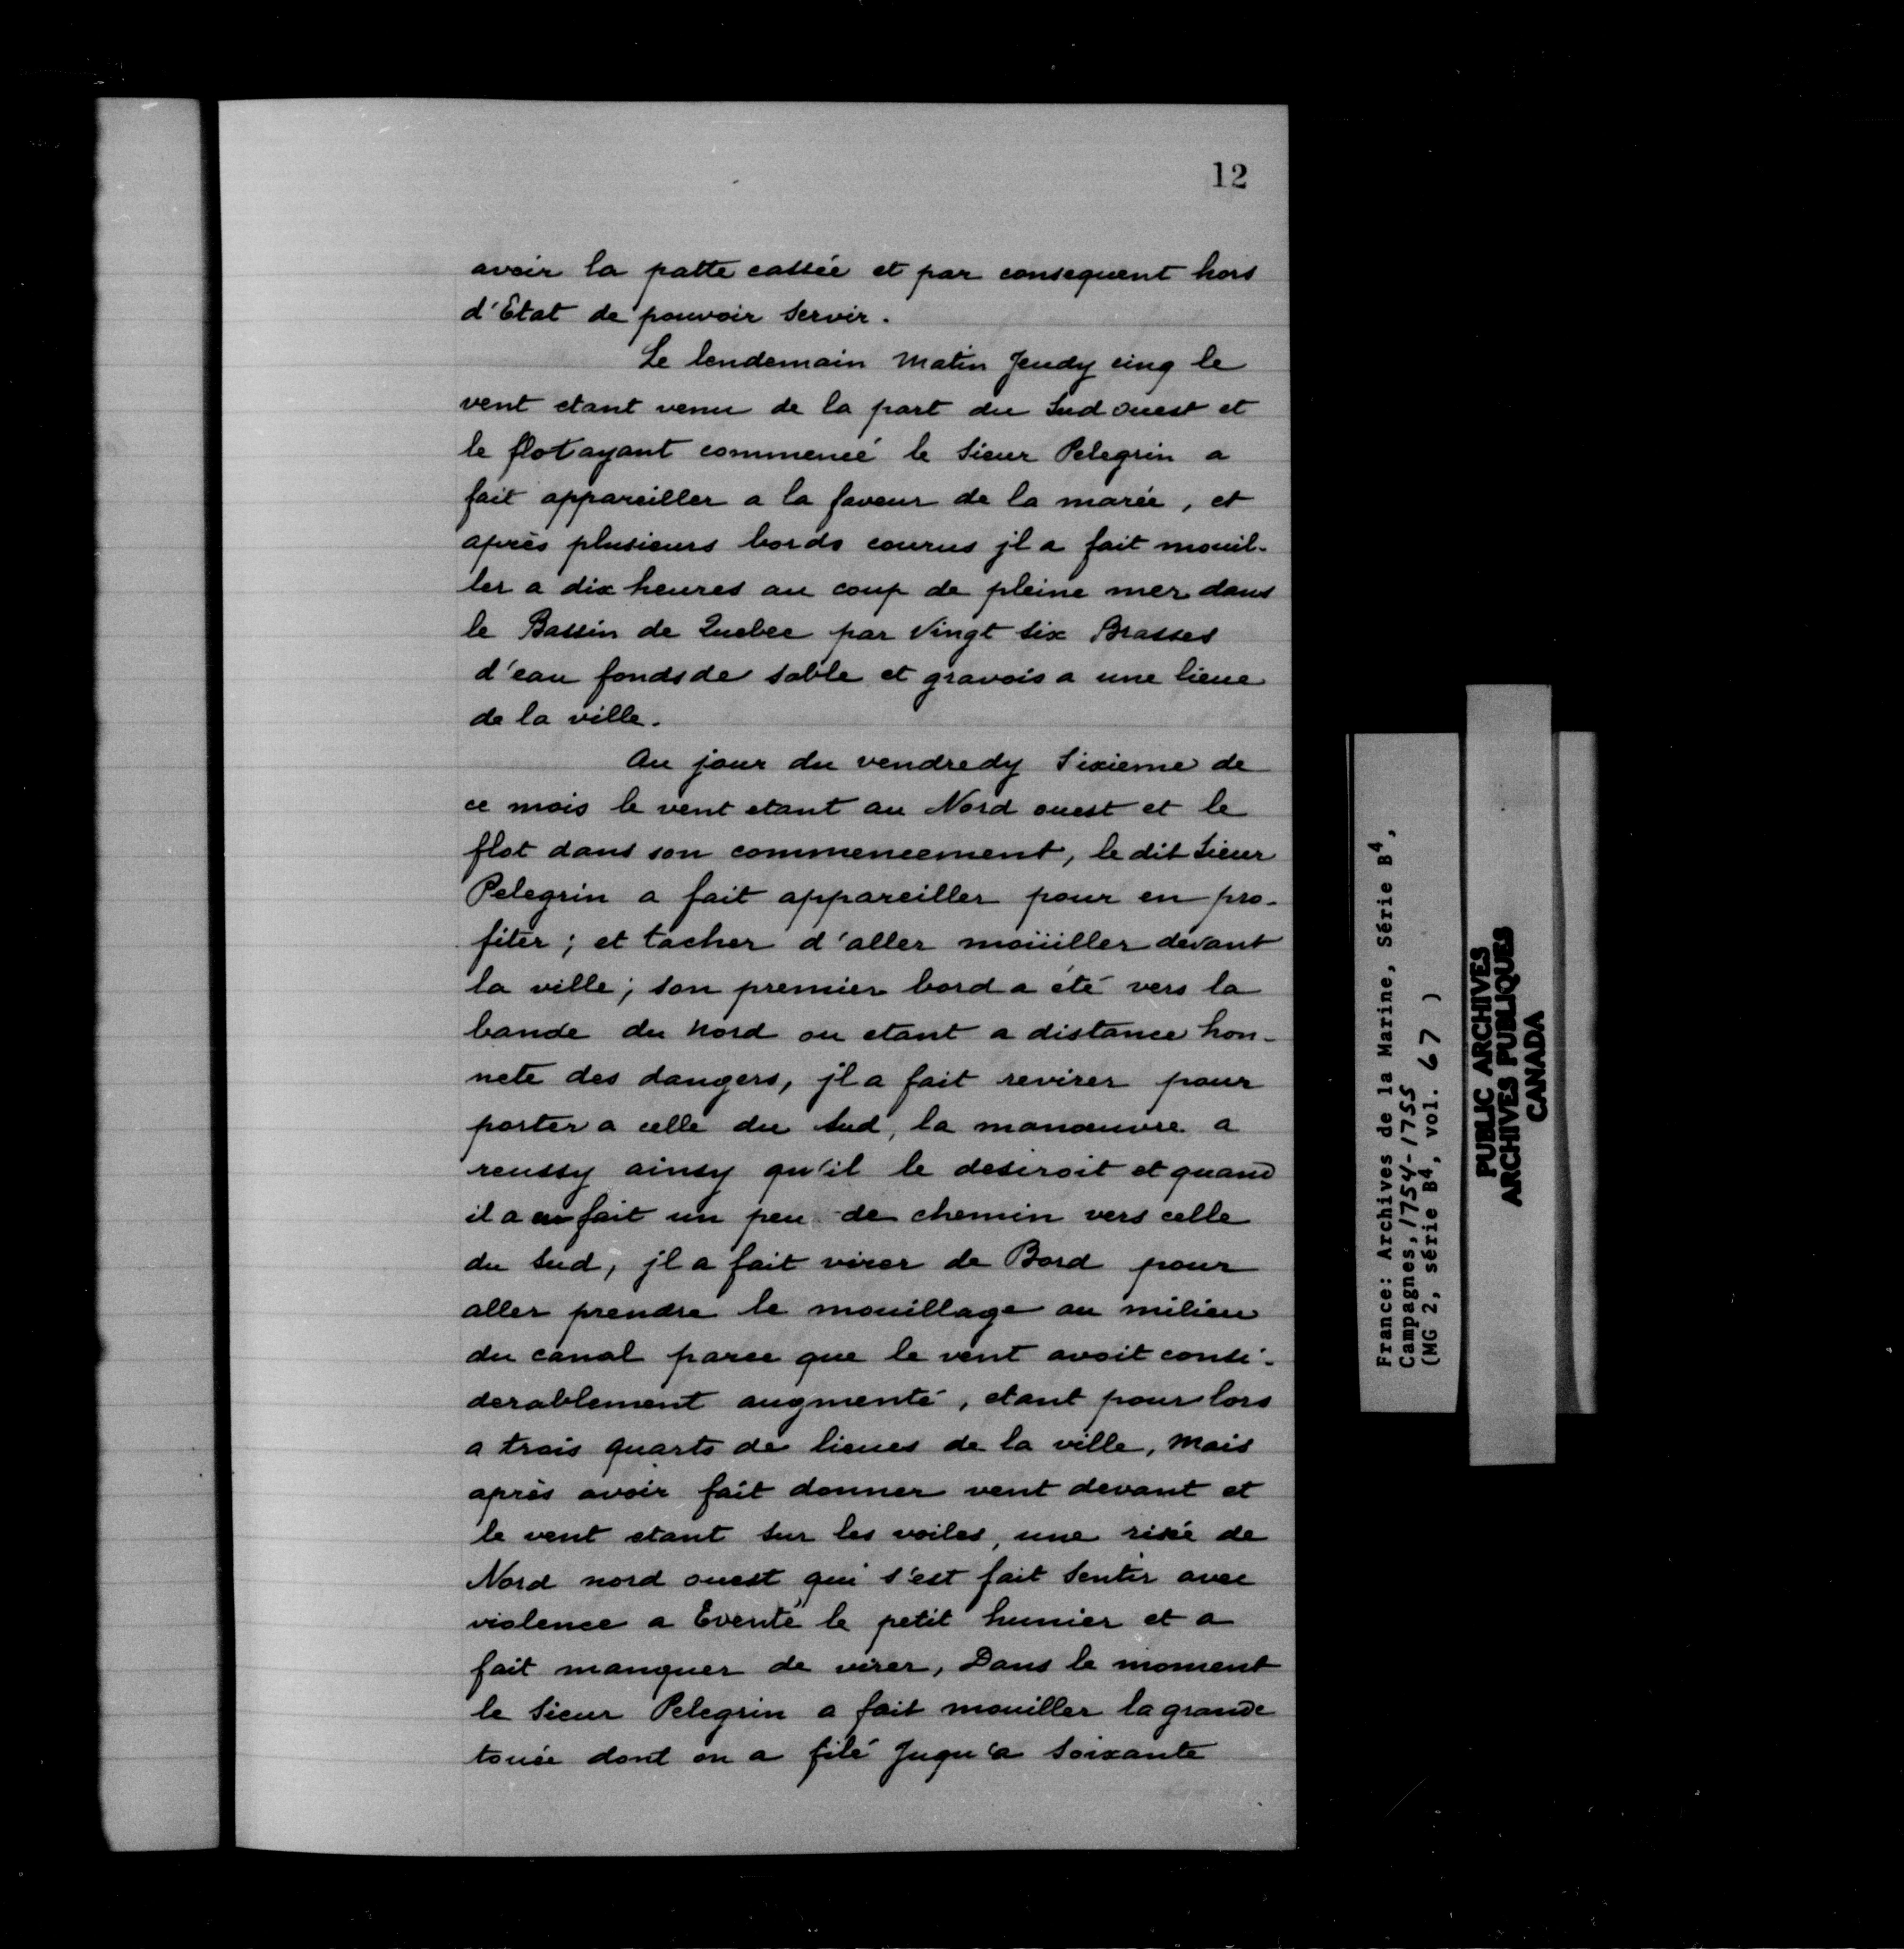 12
avoir la patte cassée et par consequent hors
d'Etat de pouvoir servir.
Le lendemain matin Jeudy cinq le
vent etant venu de la part du Sud ouest et
le flot ayant commencé le Sieur Pelegrin a
fait appareiller a la faveur de la marée, et
après plusieurs bords courus jl a fait mouil-
ler a dix heures au coup de pleine mer dans
le Bassin de Quebec par Vingt six Brasses
d'eau fonds de sable et gravois a une lieue
de la ville.
Au jour du vendredy Sixieme de
ce mois le vent etant au Nord ouest et le
flot dans son commencement, le dit Sieur
Pelegrin a fait appareiller pour en pro-
fiter; et tacher d'aller moüiller devant
la ville; son premier bord a été vers la
bande du Nord ou etant a distance hon-
nete des dangers, jl a fait revirer pour
porter a celle du Sud, la manœuvre a
reussy ainsy qu'il le desiroit et quand
il a eu fait un peu de chemin vers celle
du Sud, jl a fait virer de Bord pour
aller prendre le mouillage au milieu
du canal parce que le vent avoit consi-
derablement augmenté, etant pour lors
a trois quarts de lieues de la ville, Mais
après avoir fait donner vent devant et
le vent etant sur les voiles, une risée de
Nord nord ouest qui s'est fait sentir avec
violence a Eventé le petit hunier et a
fait manquer de virer, Dans le moment
le Sieur Pelegrin a fait mouiller la grande
touée dont on a filé Juqu'a soixante
France: Archives de la Marine, Série B4,
Campagnes, 1754-1755
(MG 2, série B4, vol. 67 )
PUBLIC ARCHIVES
ARCHIVES PUBLIQUES
CANADA